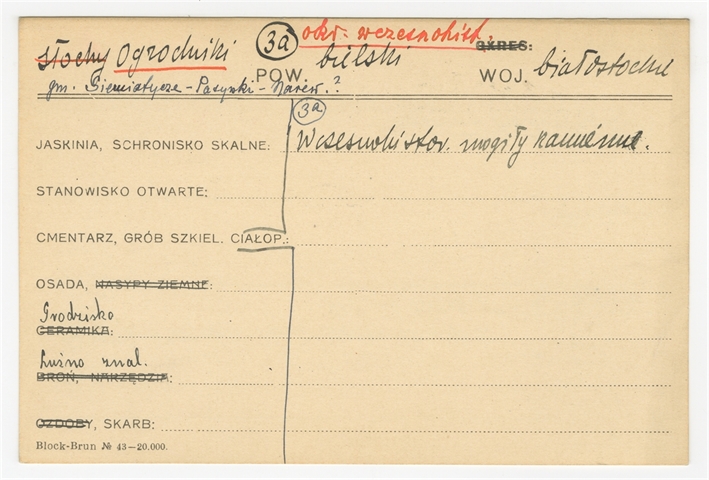 3a okr. wczesnohist.
słochy Ogrodniki POW. bielski OKRES: WOJ. białostockie
gm. Siemiatycze - Pasynki - Narew.?
3a
JASKINIA, SCHRONISKO SKALNE: Wczesnohistor. mogiły kamienne.
STANOWISKO OTWARTE:
CMENTARZ, GRÓB SZKIEL. CIAŁOP.:
OSADA, NASYPY ZIEMNE:
Grodzisko
CERAMIKA:
Luźno znal.
BROŃ, NARZĘDZIA:
OZDOBY, SKARB:
Block-Brun № 43—20.000.